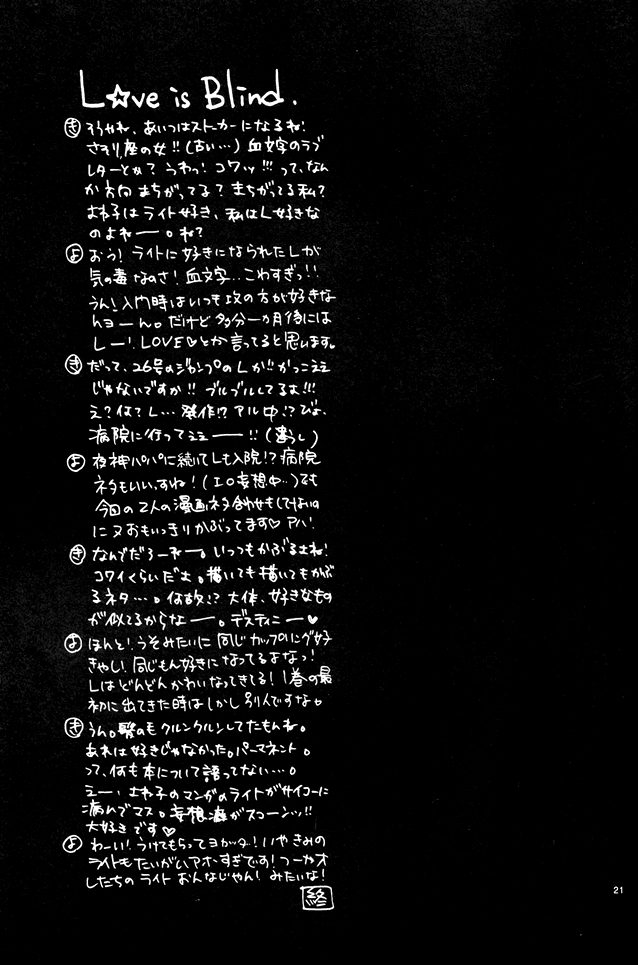 L☆ve is Blind.
き そうやね、あいつはストーカーになるね!
さそり座の女!!(古い…)血文字のラブ
レターとか? うわっ! コワッ!!! って、なん
か方向まちがってる? まちがってる私?
よね子はライト好き、私はL好きな
のよねー。ね?
よ おう! ライトに好きになられたLが
気の毒なのさ! 血文字…こわすぎっ!!
うん! 入門時はいつも攻の方が好きな
んヨーん。だけど多分一か月後には
Lー! LOVE♡とか言ってると思います。
き だって、26号のジャンプのLが!! かっこええ
じゃないですか!! ブルブルしてるよ!!!
え? 何? L…発作!? アル中!? びょ、
病院に行ってええーー!!(落ちし)
よ 夜神パパに続いてLも入院!? 病院
ネタもいいすね!(エロ妄想中…)でも
今回の2人の漫画ネタ合わせもしてないの
に又おもいっきりかぶってます♡アハ!
き なんでだろーねー。いっつもかぶるよね!
コワイくらいだよ。描いても描いてもかぶ
るネタ…。何故!? 大体、好きなもの
が似てるからなー。デスティニー♥
よ ほんと! うそみたいに同じカップリング好
きやし! 同じもん好きになってるよなっ!
Lはどんどんかわいなってきてる! 1巻の最
初に出てきた時はしかし別人ですな。
き うん。髪の毛クルンクルンしてたもんね。
あれは好きじゃなかった。パーマネント。
って、何も本について語ってない…。
えー、よね子のマンガのライトがサイコーに
病んでマス。妄想癖がスコーンッ!!
大好きです♡
よ わーい! うけてもらってヨカッタ! いやきみの
ライトもたいがいアホすぎです! つーかオ
レたちのライトおんなじゃん! みたいな!
終
21